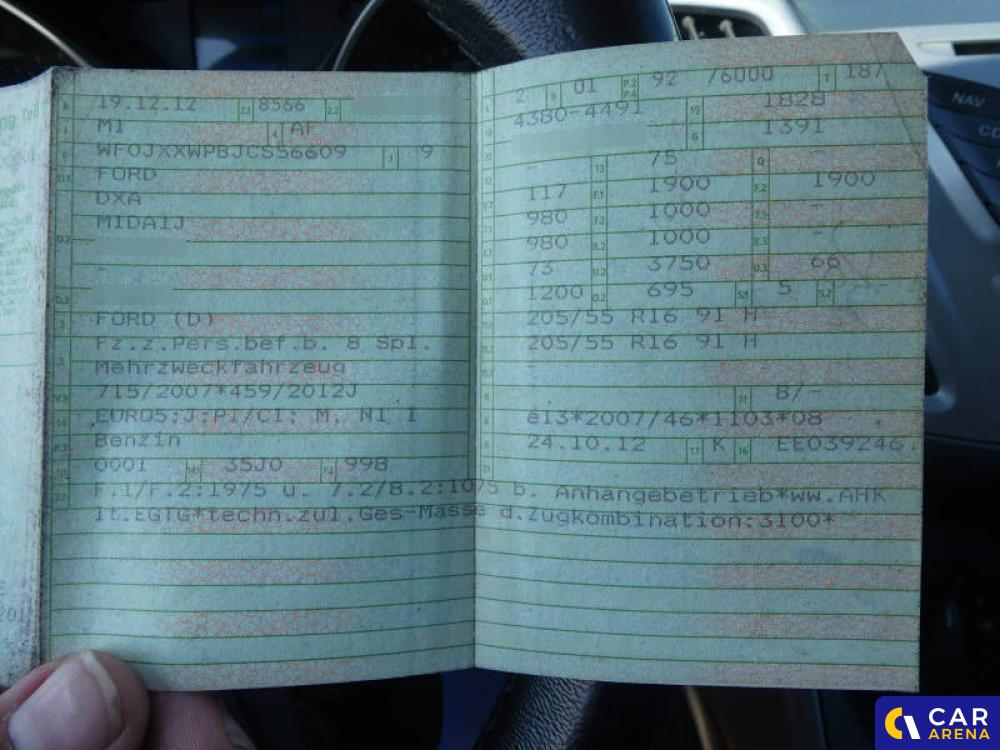 B 19.12.12 2.1 8566 2.2
J M1 4 AF
E WF0JXXWPBJCS56609 3 9
D.1 FORD
DXA
M1DA1J
D.2
-
D.3
2 FORD (D)
5 Fz.z.Pers.bef.b. 8 Spl.
Mehrzweckfahrzeug
V.9 715/2007*459/2012J
14 EURO5;J;PI/CI; M, N1 I
P.3 Benzin
10 0001 14.1 35J0 P.1 998
22 F.1/F.2:1975 u. 7.2/8.2:1075 b. Anhängebetrieb*ww.AHK
lt.EGTG*techn.zul.Ges-Masse d.Zugkombination:3100*
L 2 9 01 P.2 P.4 92 /6000 T 187
18 4380-4491 19 1828
20 G 1391
12 - 13 75 Q -
V.7 117 F.1 1900 F.2 1900
7.1 980 7.2 1000 7.3 -
8.1 980 8.2 1000 8.3 -
U.1 73 U.2 3750 U.3 66
O.1 1200 O.2 695 S.1 5 S.2 -
15.1 205/55 R16 91 H
15.2 205/55 R16 91 H
-
R 11 8/-
K e13*2007/46*1103*08
6 24.10.12 17 K 16 EE039246
21
NAV
CAR
ARENA